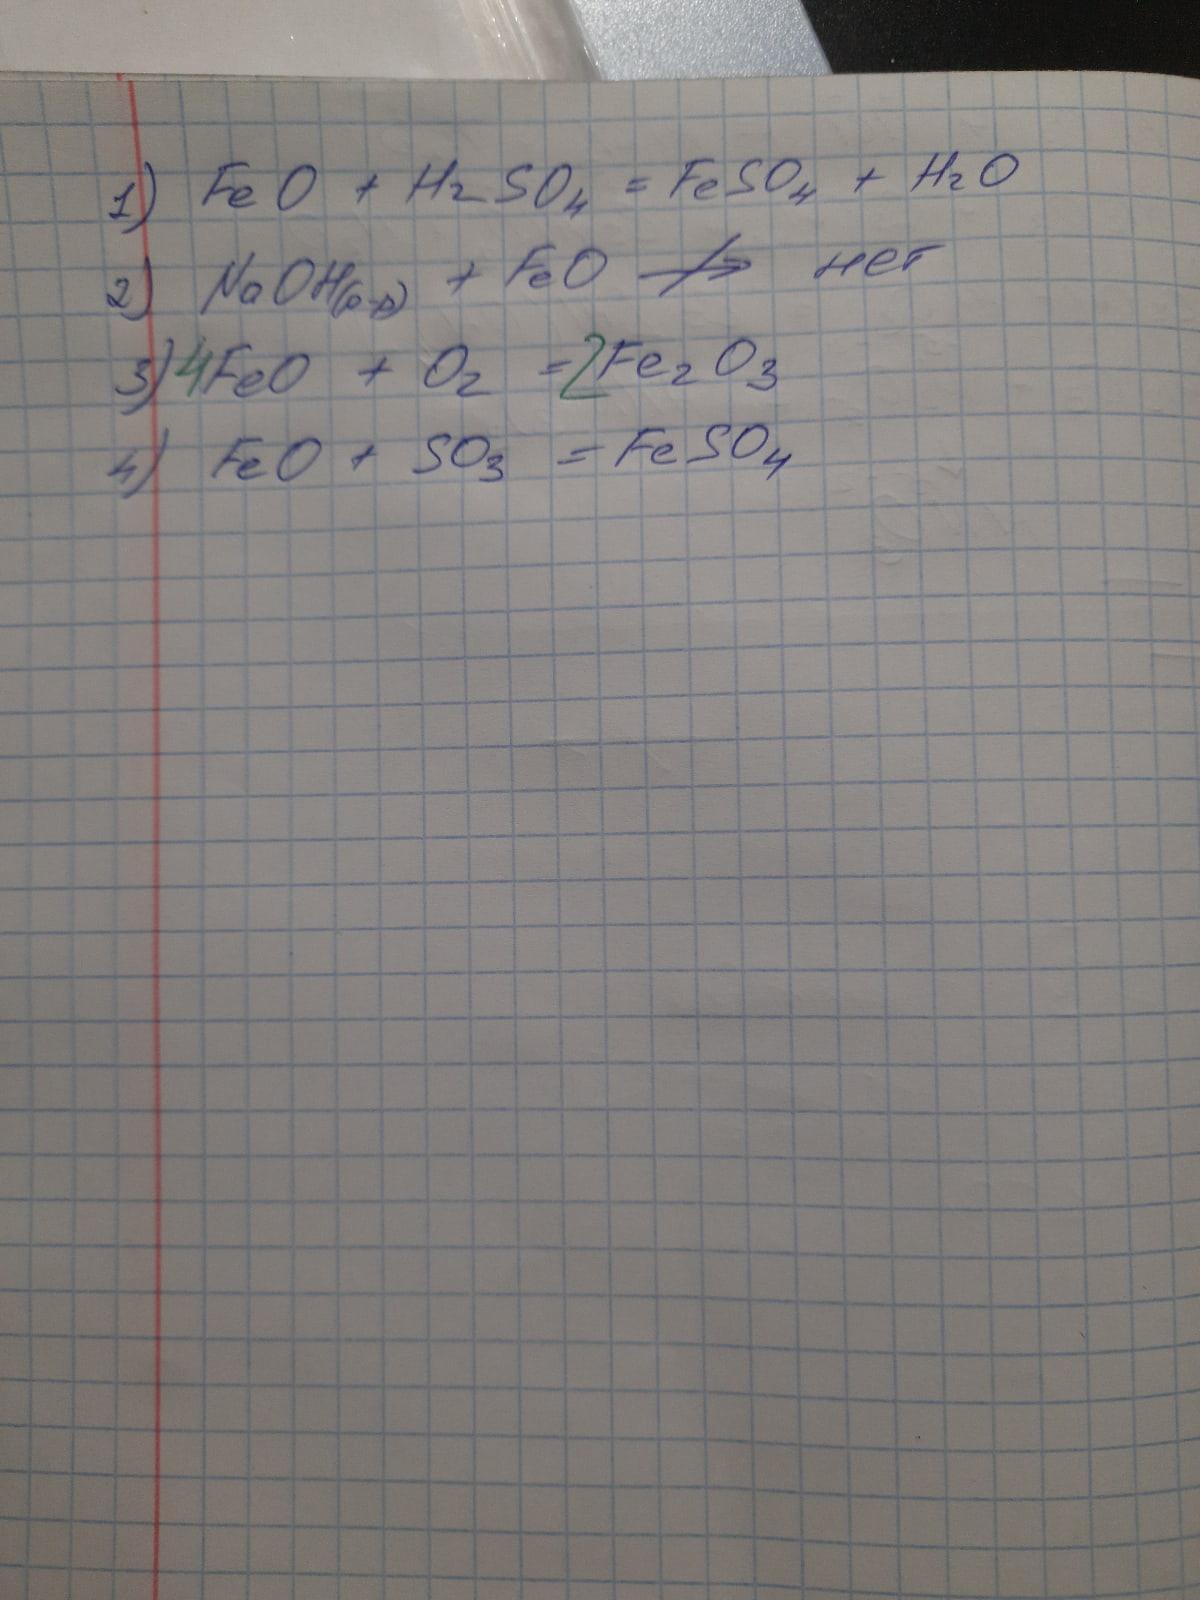 1) FeO + H₂SO₄ = FeSO₄ + H₂O
2) NaOH(р-р) + FeO ↛ нет
3) 4FeO + O₂ = 2Fe₂O₃
4) FeO + SO₃ = FeSO₄